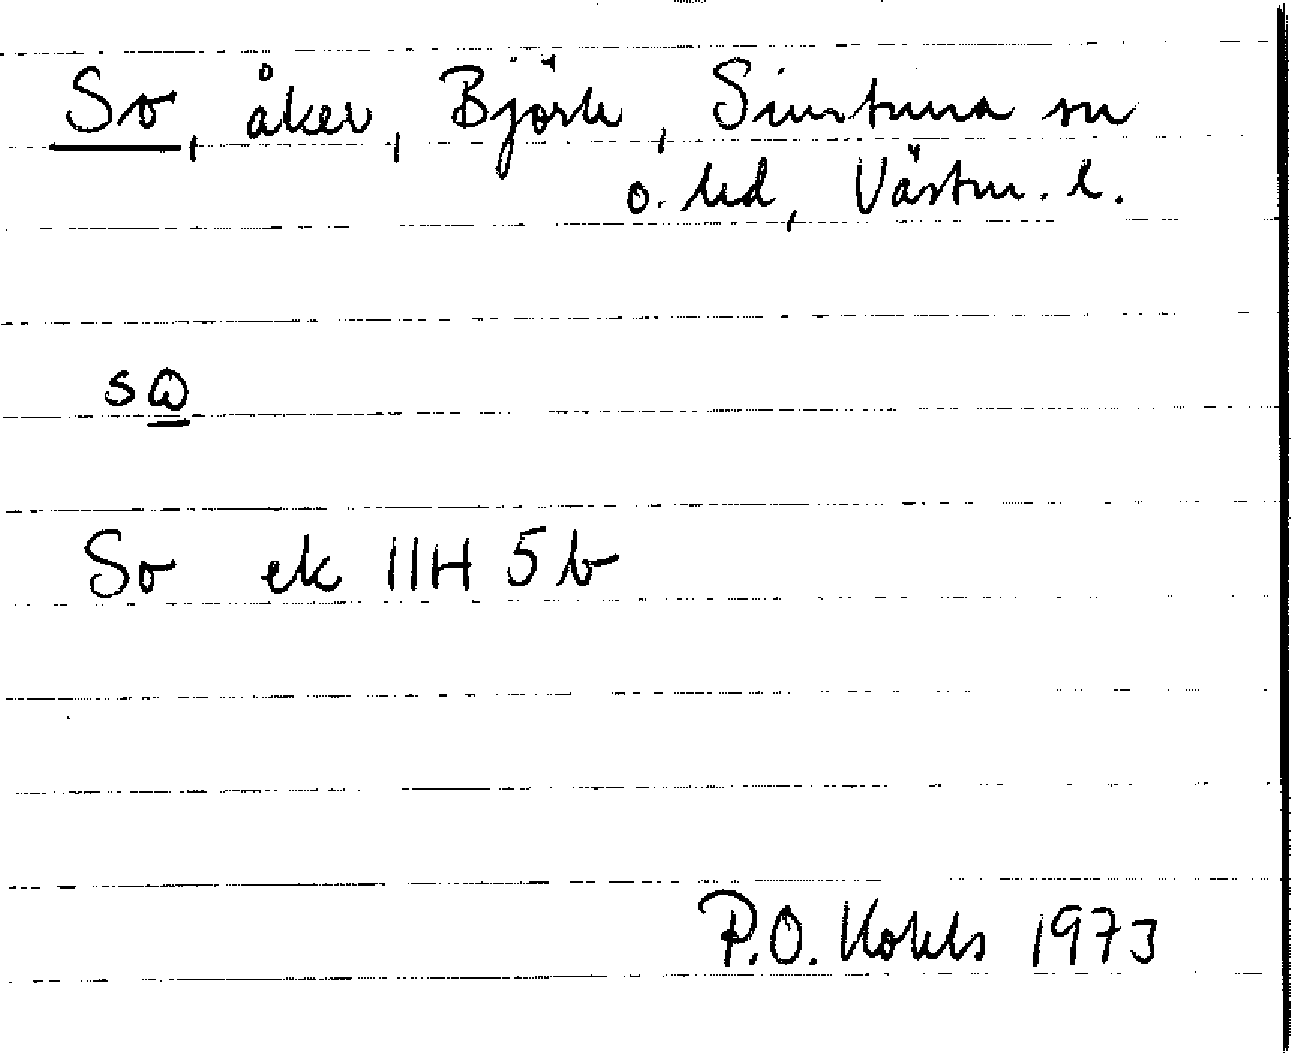 So, åker, Björk, Simtuna sn
o. hd, Västm. l.
So ek 11H 5b
P.O. 1973